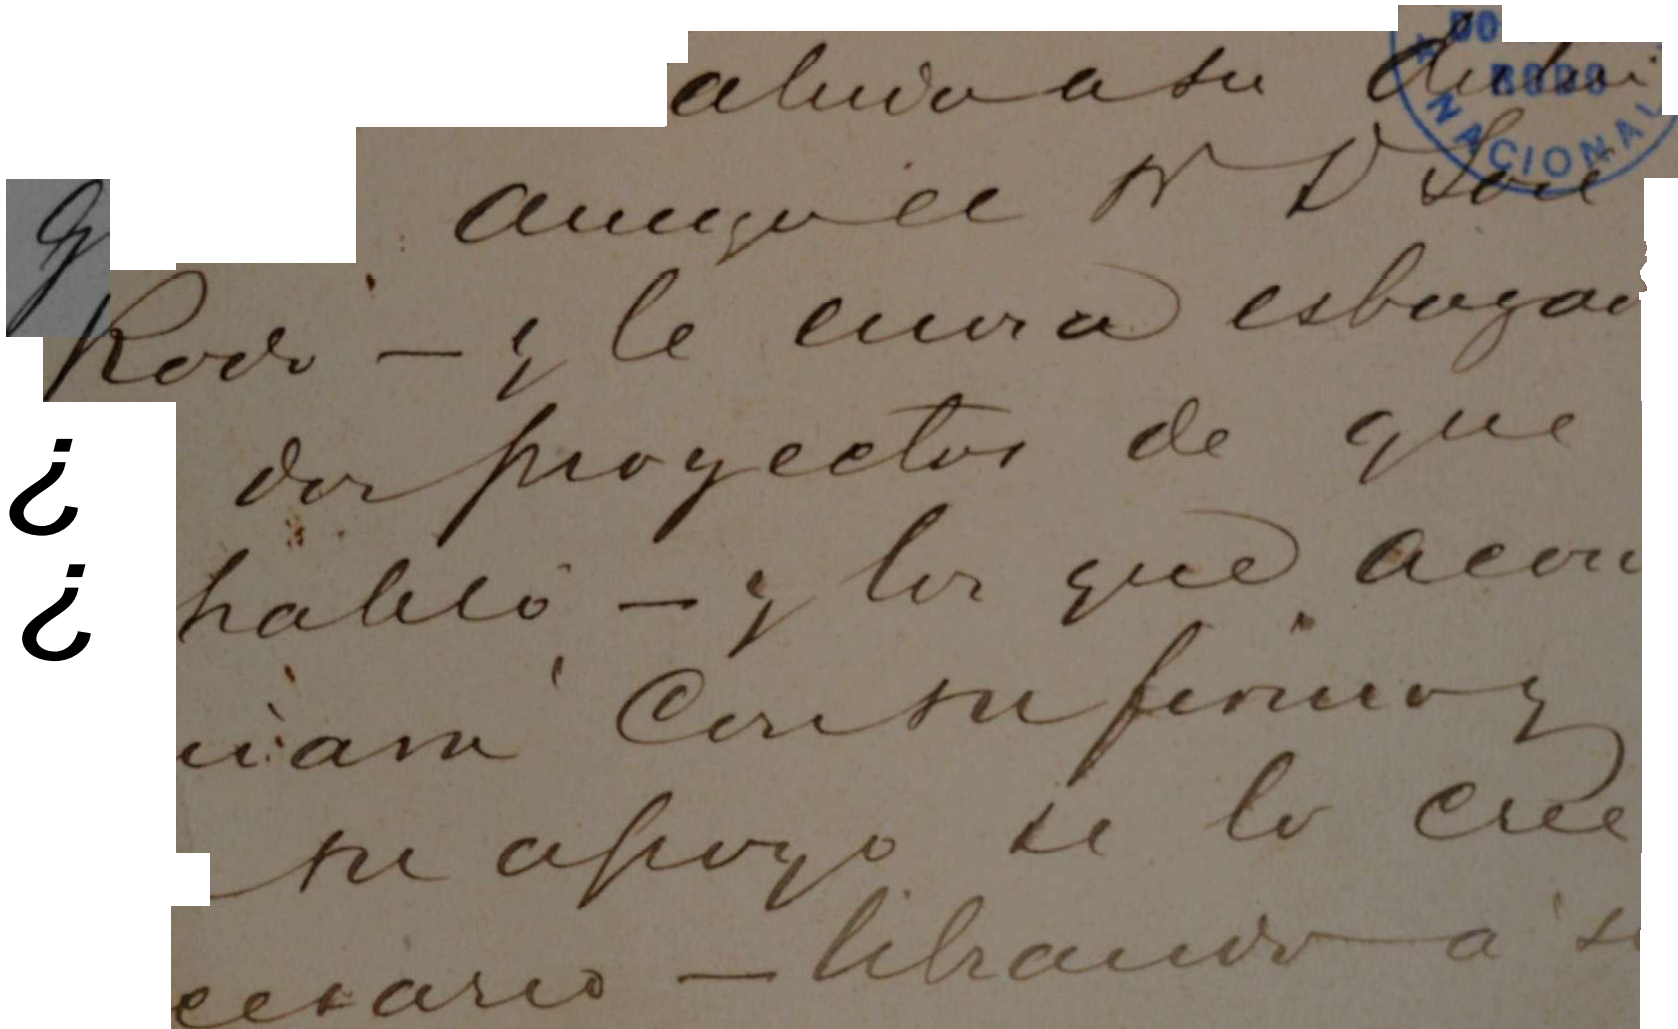 saluda a su distin
amigo el Sr D José
Rodó — y le envia esboza
dos proyectos de que
habló — y los que acom
con su firma y
su apoyo si lo cree
cesario — librando á su
¿
¿